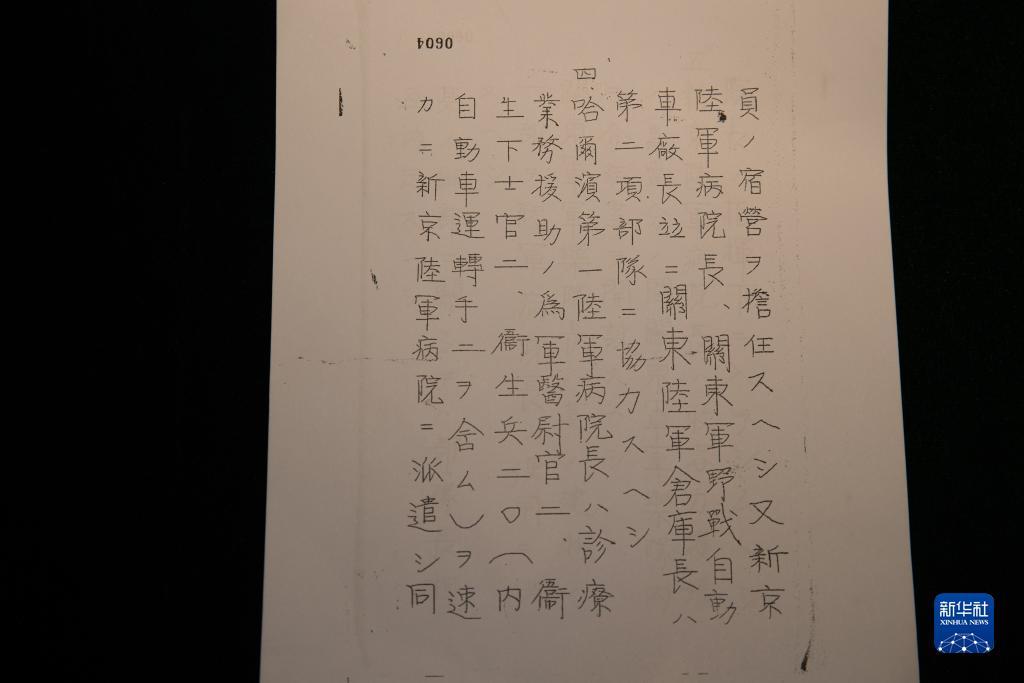 0604
員ノ宿營ヲ擔任スヘシ又新京
陸軍病院長、關東軍野戰自動
車廠長並ニ關東陸軍倉庫長ハ
第二項部隊ニ協力スヘシ
四、哈爾濱第一陸軍病院長ハ診療
業務援助ノ爲軍醫尉官二、衞
生下士官二、衞生兵二〇(内
自動車運轉手二ヲ含ム)ヲ速
カニ新京陸軍病院ニ派遣シ同
新华社
XINHUA NEWS